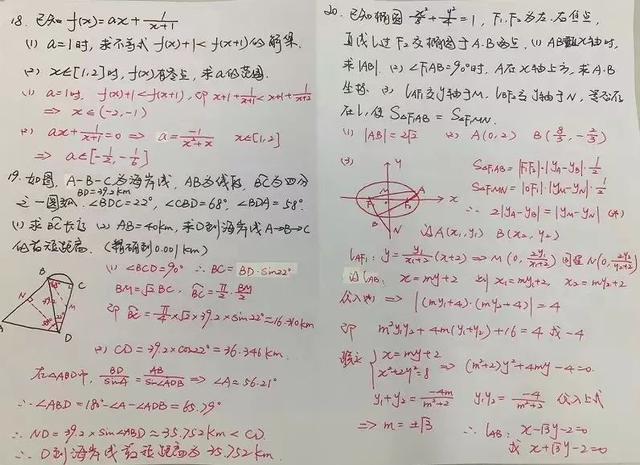 18. 已知 f(x)=ax+1/(x+1)
(1) a=1时, 求不等式 f(x)+1<f(x+1)的解集.
(2) x∈[1,2]时, f(x)有零点, 求a的范围.
(1) a=1时, f(x)+1<f(x+1), 即 x+1+1/(x+1)<x+1+1/(x+2)
⇒ x∈(-2,-1)
(2) ax+1/(x+1)=0 ⇒ a=-1/(x²+x) x∈[1,2]
⇒ a∈[-1/2,-1/6]
19. 如图, A-B-C为海岸线, AB为线段, BC为四分
之一圆弧, BD=39.2km ∠BDC=22°, ∠CBD=68°, ∠BDA=58°.
(1) 求BC长度 (2) AB=40km, 求D到海岸线A→B→C
的最短距离. (精确到0.001km)
(1) ∠BCD=90° ∴ BC=BD·sin22°
BM=√2BC, BC=π/2·BM/2
即 BC=π/4×√2×39.2×sin22°=16.310km
(2) CD=39.2×cos22°=36.346km.
在△ABD中, BD/sinA=AB/sin∠ADB ⇒ ∠A=56.21°
∴ ∠ABD=180°-∠A-∠ADB=65.79°
∴ ND=39.2×sin∠ABD≈35.752km<CD.
∴ D到海岸线最短距离为35.752km.
B
C
N
M
A
D
20. 已知椭圆 x²/8+y²/4=1, F₁,F₂为左、右焦点,
直线l过F₂交椭圆于A、B两点, (1) AB⊥x轴时,
求|AB|. (2) ∠F₁AB=90°时, A在x轴上方, 求A、B
坐标. (3) l_AF₁交y轴于M, l_BF₁交y轴于N, 是否存
在l, 使S△F₁AB=S△F₁MN.
(1) |AB|=2√2 (2) A(0,2) B(8/3,-2/3)
(3)
y
x
M
A
F₁
B
N
S△F₁AB=|F₁F₂|·|y_A-y_B|·1/2
S△F₁MN=|OF₁|·|y_M-y_N|·1/2
∴ 2|y_A-y_B|=|y_M-y_N| (*)
设A(x₁,y₁) B(x₂,y₂)
l_AF₁: y=y₁/(x₁+2)(x+2) ⇒ M(0,2y₁/(x₁+2)) 同理N(0,2y₂/(x₂+2))
设l_AB: x=my+2 则 x₁=my₁+2, x₂=my₂+2
代入(*) ⇒ |(my₁+4)·(my₂+4)|=4
即 m²y₁y₂+4m(y₁+y₂)+16=4 或-4
联立 {x=my+2
x²+2y²=8 ⇒ (m²+2)y²+4my-4=0.
y₁+y₂=-4m/(m²+2) y₁y₂=-4/(m²+2) 代入上式
⇒ m=±√3 ∴ l_AB: x-√3y-2=0
或 x+√3y-2=0